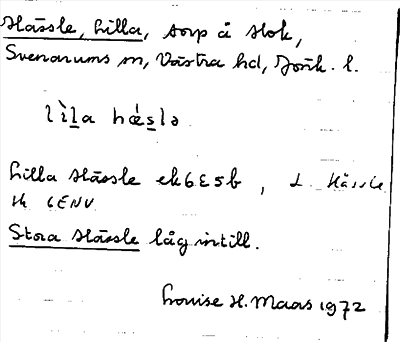 Hässle, Lilla, torp å Stok,
Svenarums sn, Västra hd, Jönk. l.
lìl̲a hǽs̲lə
Lilla Hässle ek6E5b, L. Hässle
tk 6ENV
Stora Hässle låg intill.
Louise H. Maas 1972